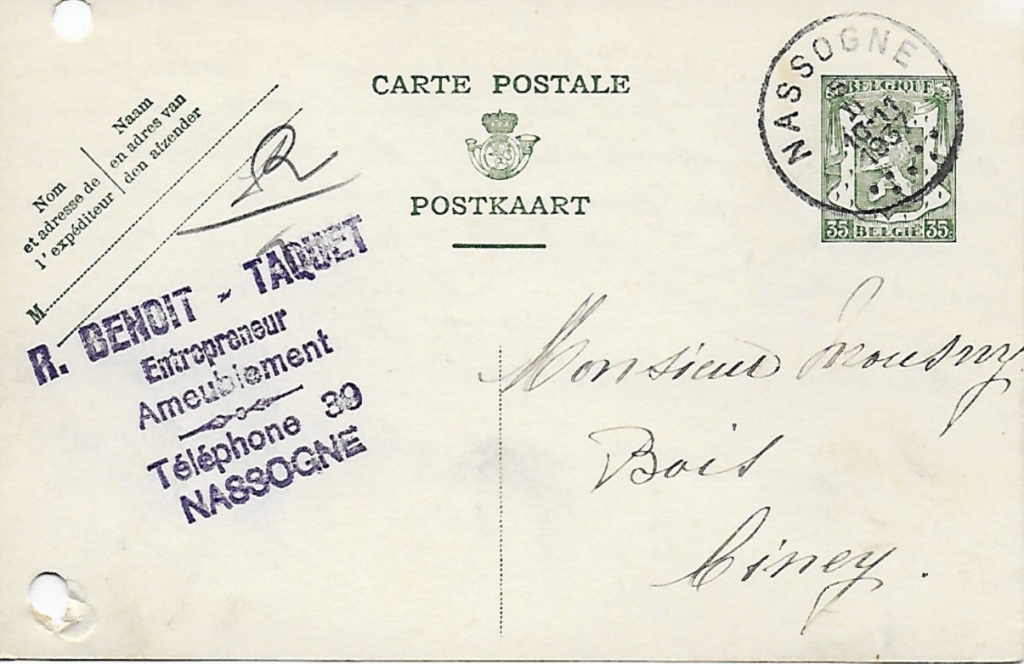 CARTE POSTALE
POSTKAART
Nom
et adresse de
l'expéditeur
Naam
en adres van
den afzender
M
R
R. BENOIT - TAQUET
Entrepreneur
Ameublement
Téléphone 39
NASSOGNE
NASSOGNE
10-11
1937
BELGIQUE
35 BELGIË 35
Monsieur Mousny
Bois
Ciney.